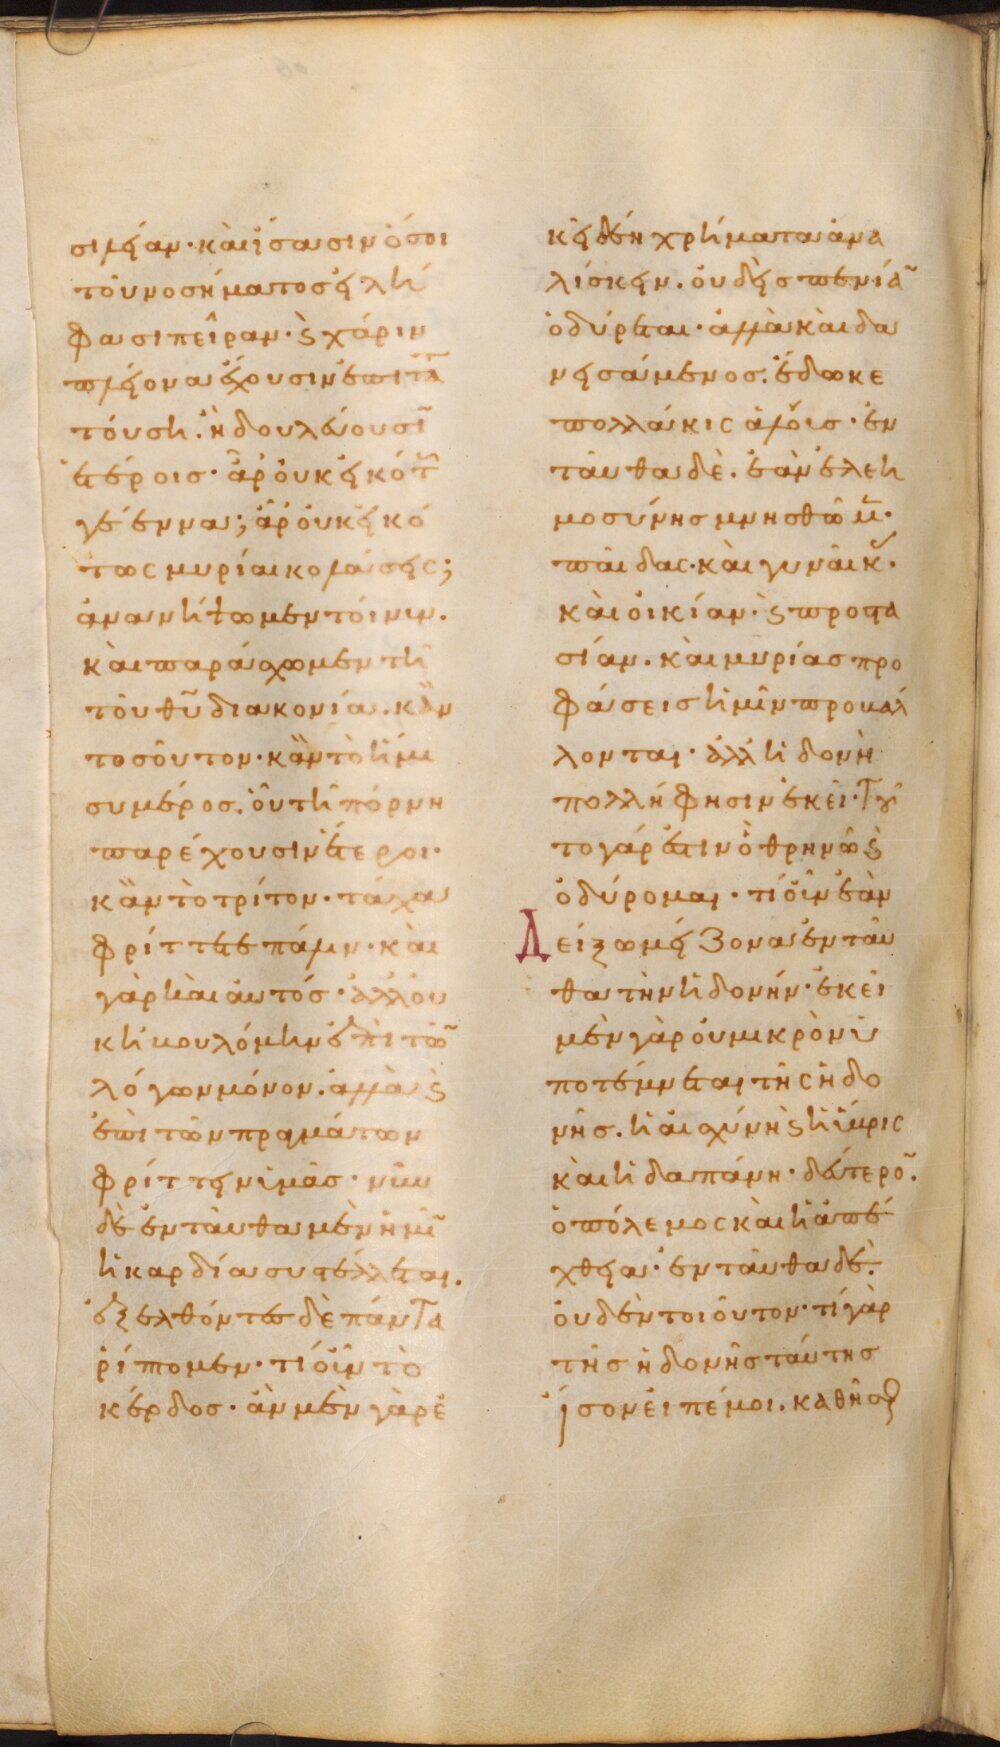 σιλείαν· καὶ ἴσασιν ὅσοι
τοῦ νοσήματος εἰλή
φασι πεῖραν· ϗ χάριν
πλείονα ἔχουσιν ἐπὶ τα
τούση. ἢ δουλεύουσι
ἑτέροις· ἆρ οὐκ εἰκότ
γέεννα; ἆρ οὐκ εἰκό
τως μυρίαι κολάσεις;
ἀνανήψωμεν τοίνυν.
καὶ παράσχωμεν τῆ
τοῦ θυ διακονία. κἂν
τοσοῦτον· κἂν τὸ ἥμι
συ μέρος. οὗ τῆ πόρνη
παρέχουσιν ἕτεροι·
κἂν τὸ τρίτον· τάχα
φρίττετε πάλιν· καὶ
γὰρ καὶ αὐτός· ἀλλ ου
κ ἠβουλόμην ἐπὶ τῶ
λόγων μόνον. ἀλλὰ ϗ
ἐπὶ τῶν πραγμάτων
φρίττειν ὑμᾶς· νῦν
δὲ ἐνταῦθα μὲν ἡμῖ
ἡ καρδία συστέλλεται.
ἐξελθόντες δὲ πάντα
ῥίπτομεν· τί οὖν τὸ
κέρδος· ἂν μὲν γὰρ ἐ
κεῖ δέη χρήματα ἀνα
λίσκειν. οὐδεὶς πενία
ὀδύρεται· ἀλλὰ καὶ δα
νεισάμενος. ἔδωκε
πολλάκις ἁλούς· ἐν
ταῦθα δὲ. ἐὰν ἐλεη
μοσύνης μνησθῶμ·
παῖδας· καὶ γυναῖκ·
καὶ οἰκίαν· ϗ προστα
σίαν. καὶ μυρίας προ
φάσεις ἡμῖν προβάλ
λονται· ἀλλ ἡδονὴ
πολλή φησιν ἐκεῖ· Του
το γάρ ἐστιν ὃ θρηνῶ ϗ
ὀδύρομαι· τί οὖν ἐὰν
Δείξω μείζονα ἐνταῦ
θα τὴν ἡδονήν· ἐκεῖ
μὲν γὰρ οὐ μικρὸν ὑ
ποτέμνεται τῆς ἡδο
νῆς. ἡ αἰσχύνη ϗ ἡ ὕβρις
καὶ ἡ δαπάνη· δεύτερο.
ὁ πόλεμος καὶ ἡ ἀπέ
χθεια· ἐνταῦθα δὲ.
οὐδὲν τοιοῦτον· τί γὰρ
τῆς ἡδονῆς ταύτης
ἴσον εἰπέ μοι. καθῆσθ